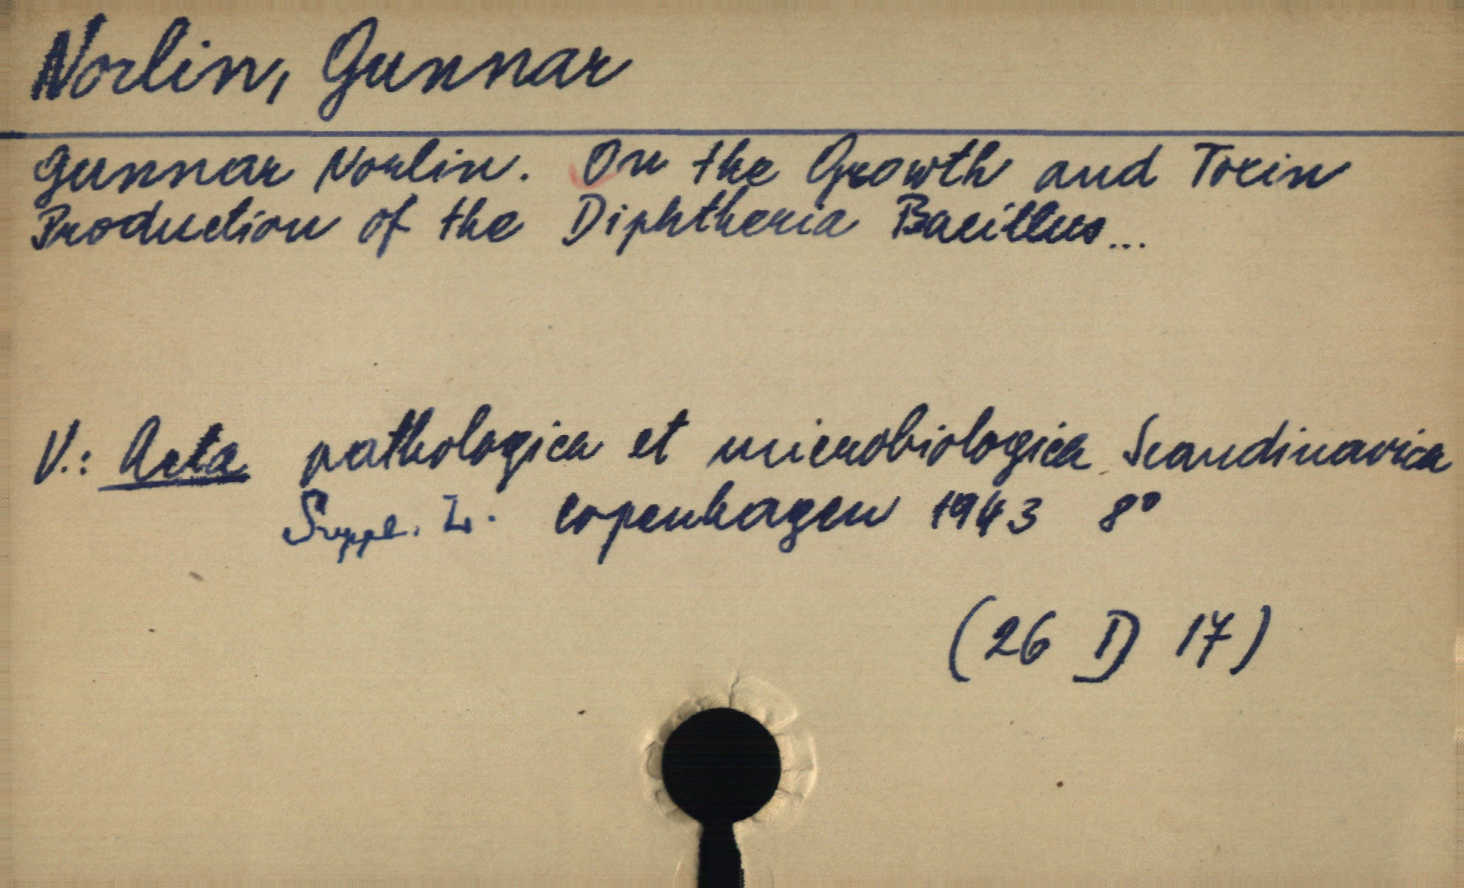 Norlin, Gunnar
Gunnar Norlin. On the Growth and Toxin
Production of the Diphtheria Bacillus...
V.: Acta pathologica et microbiologica Scandinavica
Suppl. L. Copenhagen 1943 8°
(26 D 17)